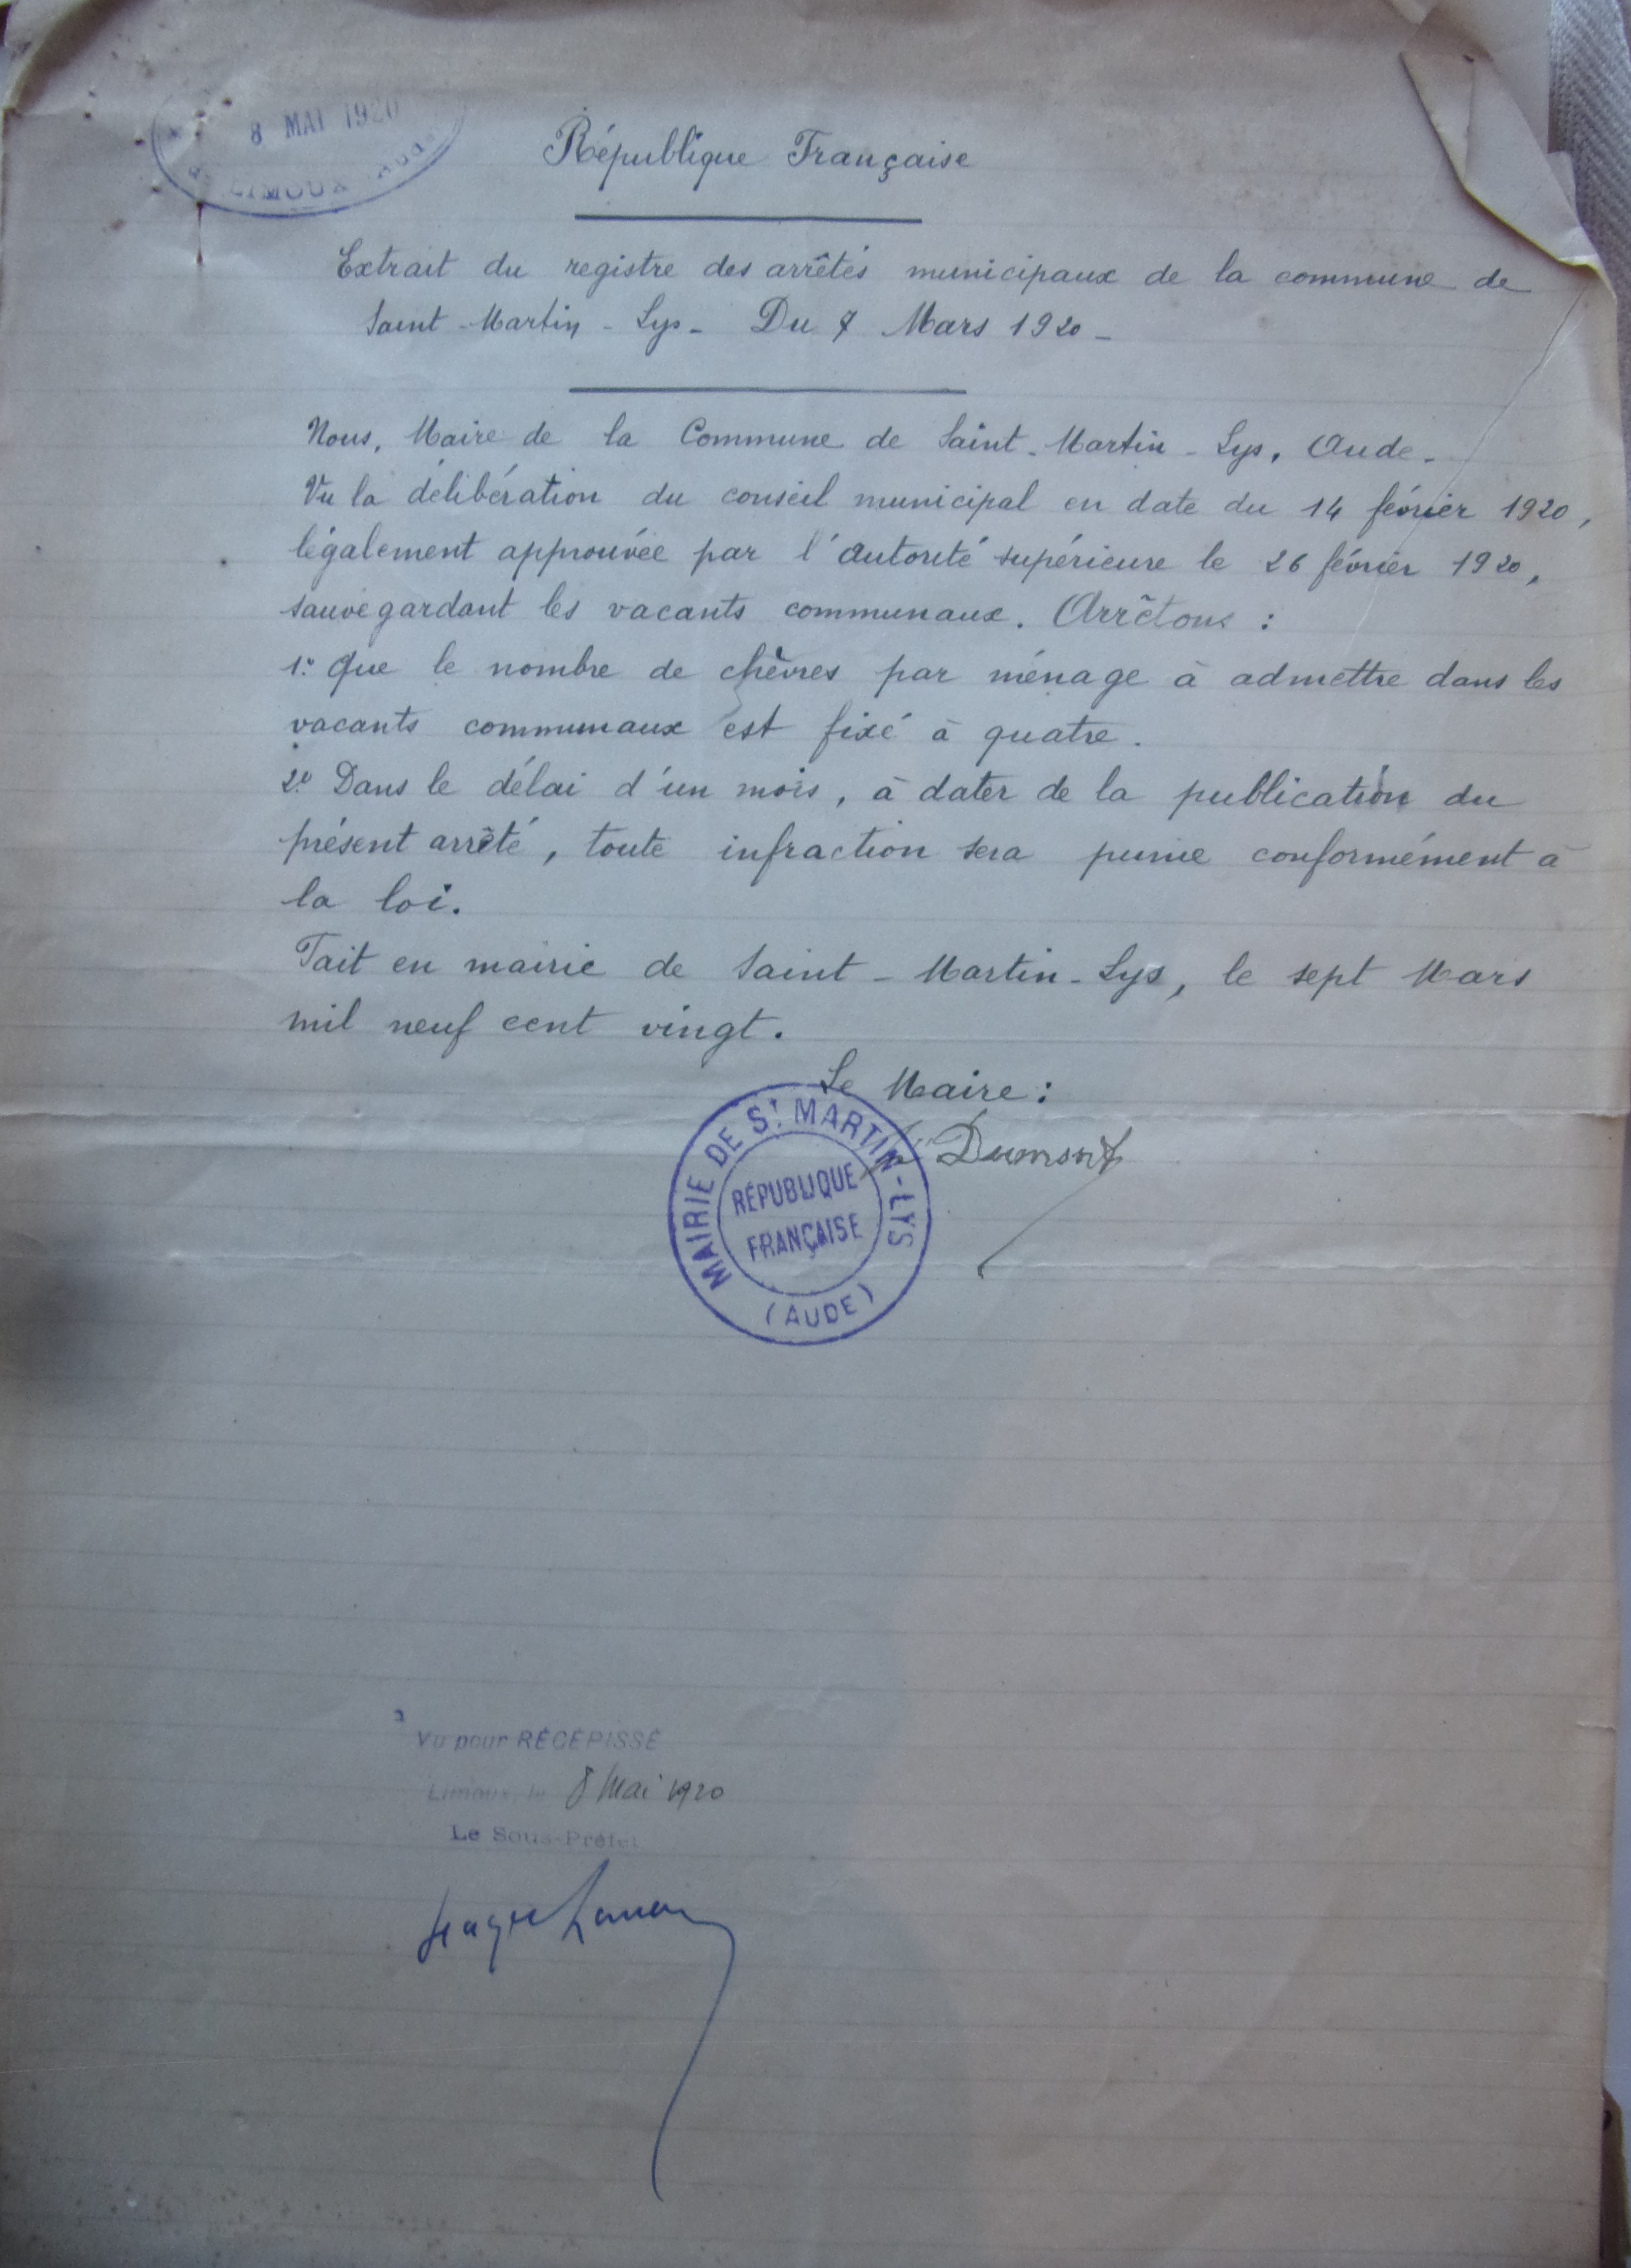 8 MAI 1920
LIMOUX
République Française
Extrait du registre des arrêtés municipaux de la commune de
Saint-Martin-Lys- Du 7 Mars 1920-
Nous, Maire de la Commune de Saint-Martin-Lys, Aude.
Vu la délibération du conseil municipal en date du 14 février 1920,
légalement approuvée par l'autorité supérieure le 26 février 1920,
sauvegardant les vacants communaux. Arrêtons :
1° Que le nombre de chèvres par ménage à admettre dans les
vacants communaux est fixé à quatre.
2° Dans le délai d'un mois, à dater de la publication du
présent arrêté, toute infraction sera punie conformément à
la loi.
Fait en mairie de Saint-Martin-Lys, le sept Mars
mil neuf cent vingt.
Le Maire :
Dumont
MAIRIE DE St MARTIN-LYS
RÉPUBLIQUE
FRANÇAISE
(AUDE)
Vu pour RÉCÉPISSÉ
Limoux, le 8 Mai 1920
Le Sous-Préfet